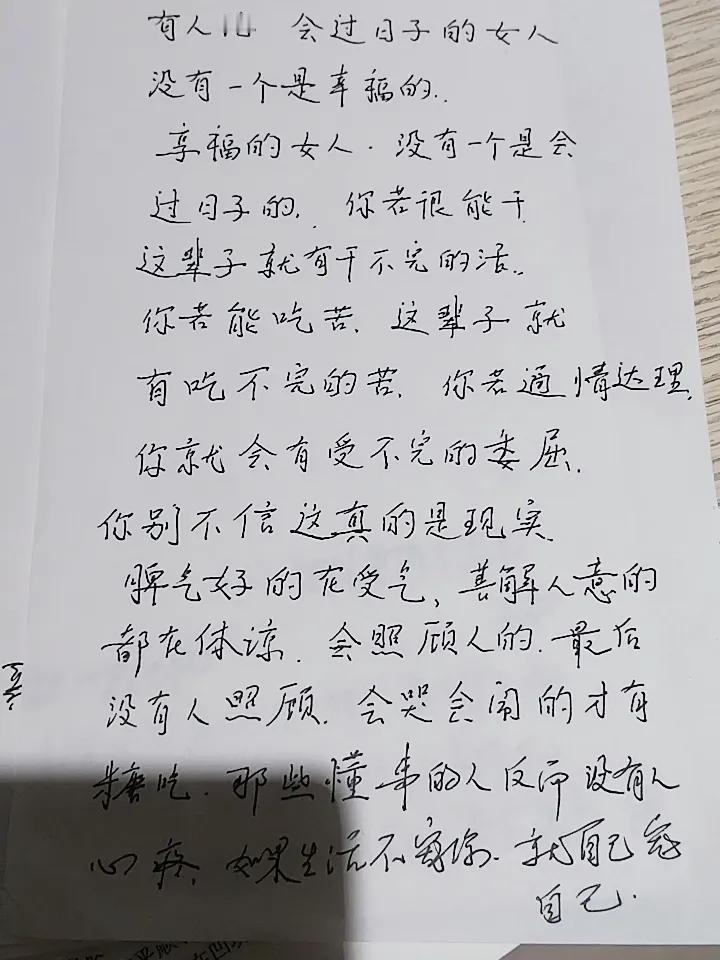 有人说 会过日子的女人
没有一个是幸福的.
享福的女人.没有一个是会
过日子的. 你若很能干
这辈子就有干不完的活.
你若能吃苦.这辈子就
有吃不完的苦.你若通情达理.
你就会有受不完的委屈.
你别不信这真的是现实.
脾气好的在受气、善解人意的
都在体谅.会照顾人的.最后
没有人照顾.会哭会闹的才有
糖吃.那些懂事的人反而没有人
心疼.如果生活不宠你.就自己宠
自己.